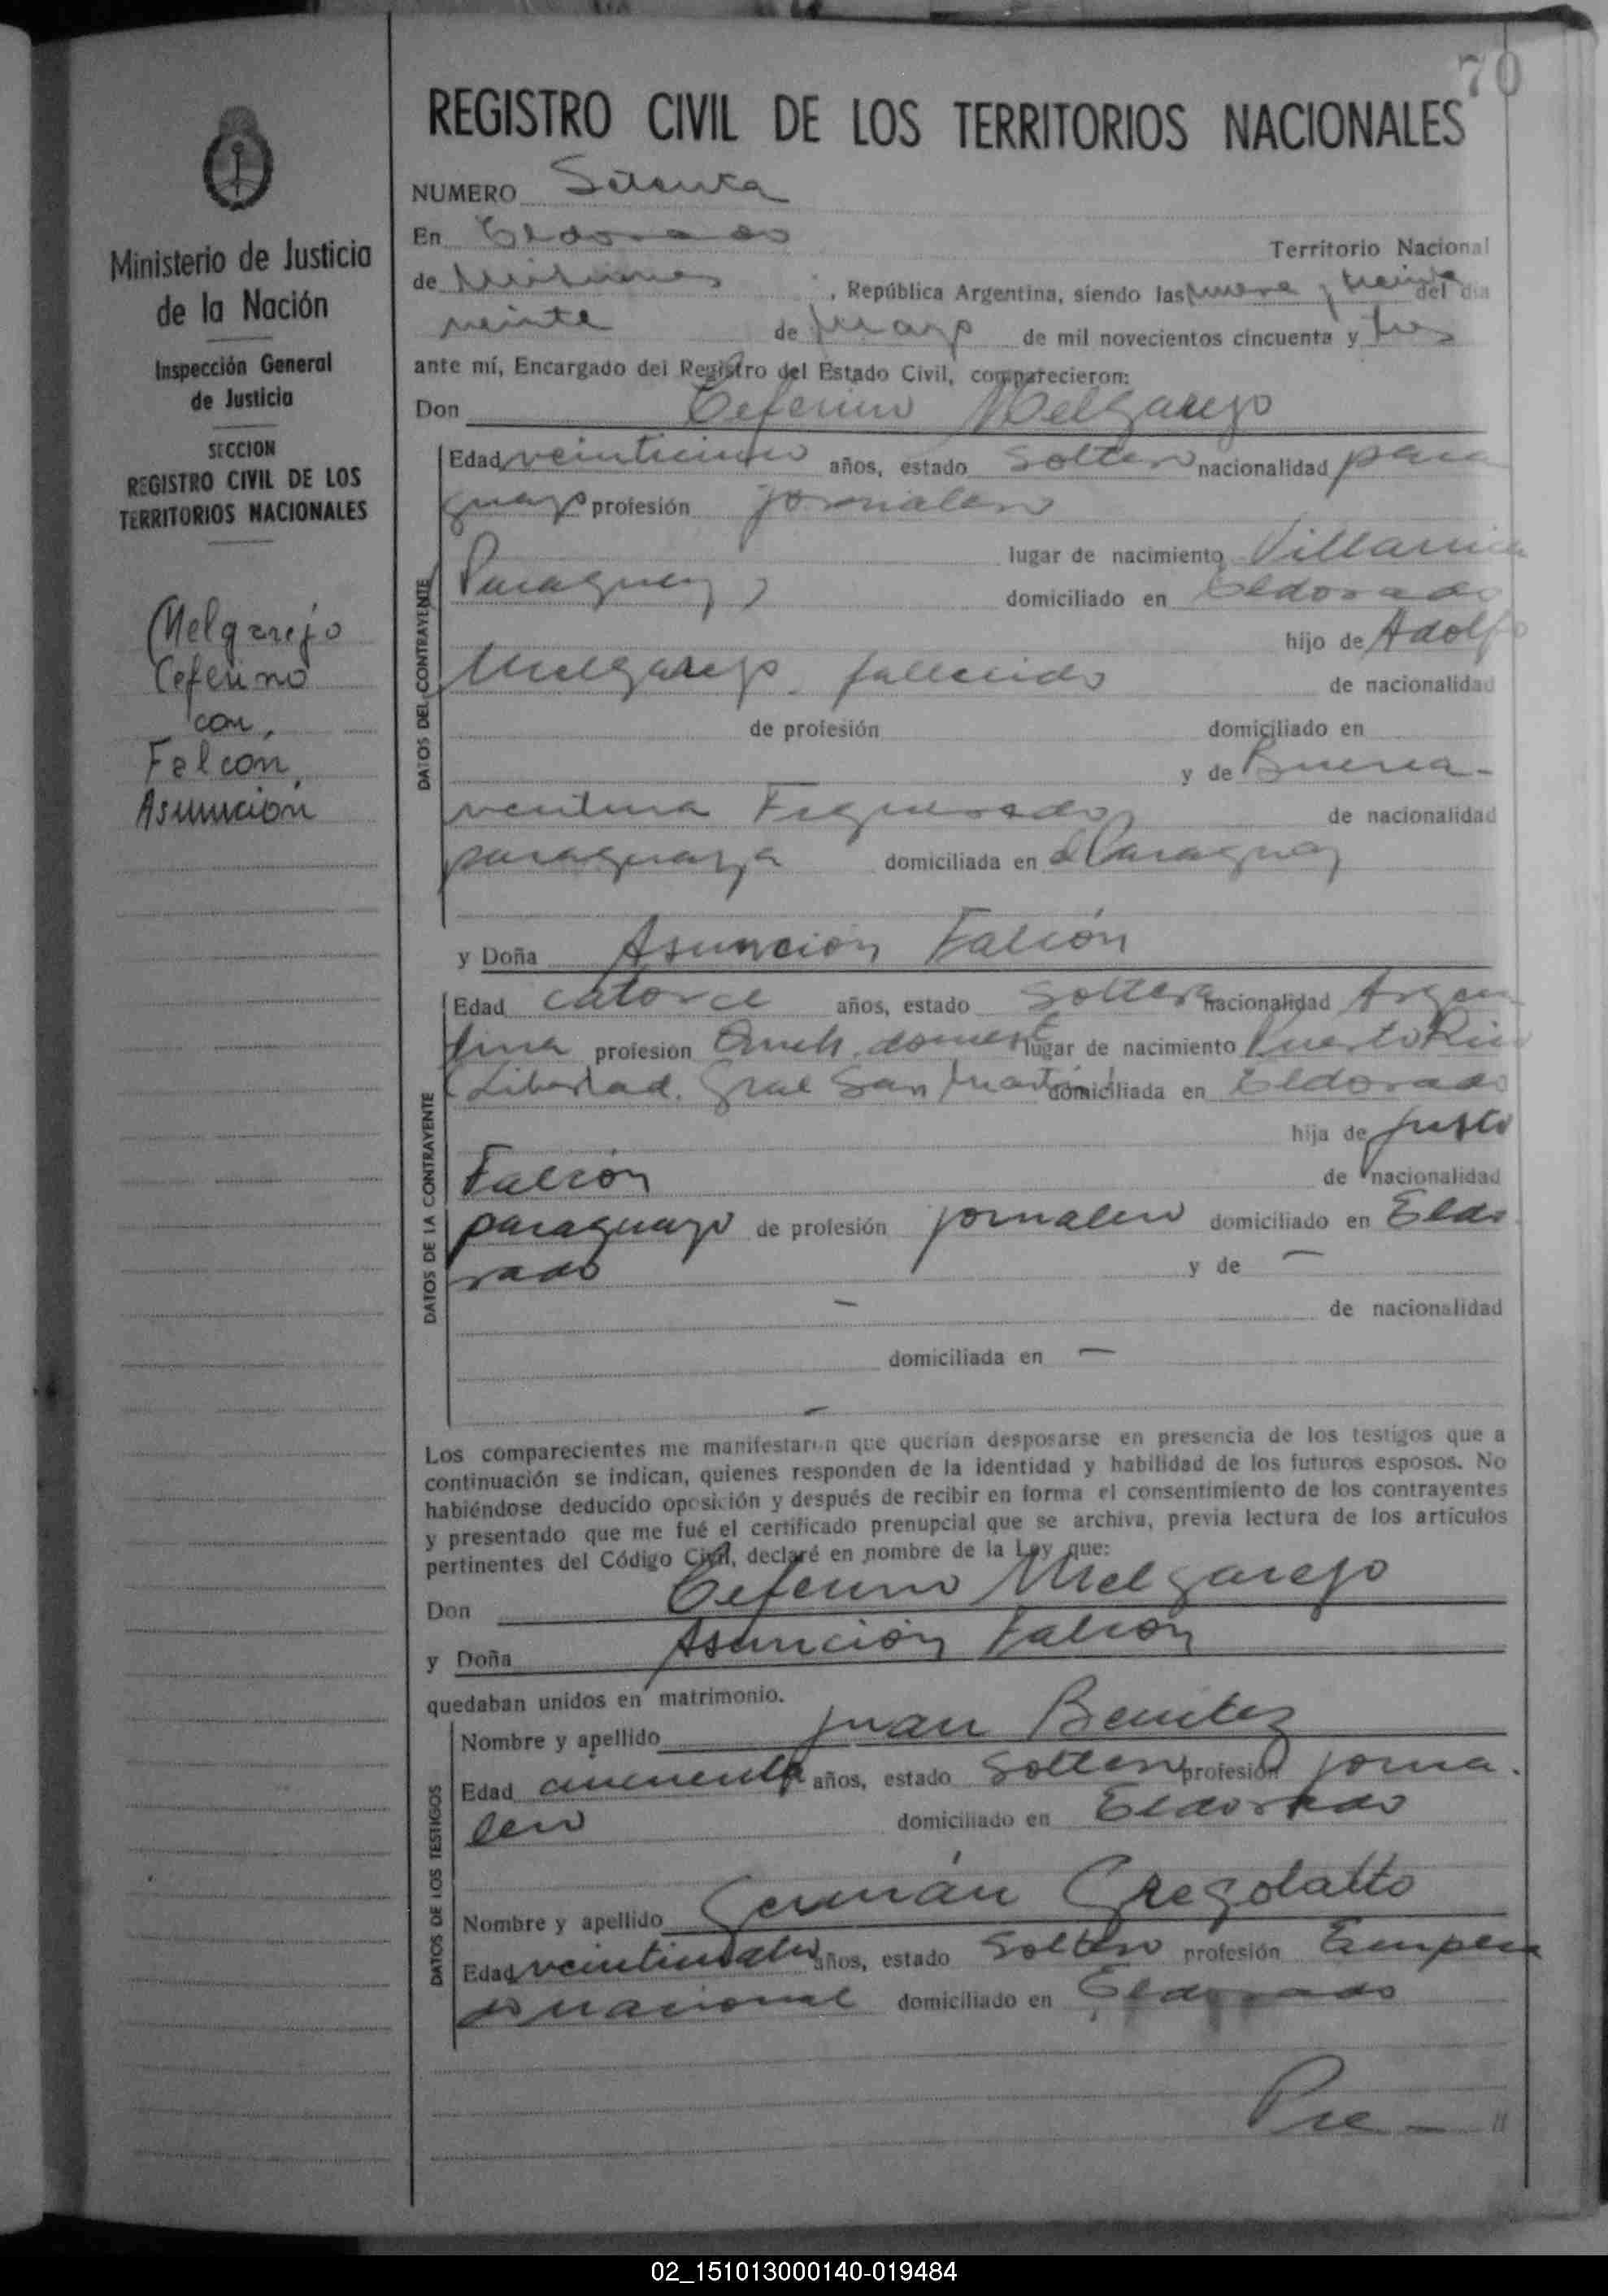 70
REGISTRO CIVIL DE LOS TERRITORIOS NACIONALES
Ministerio de Justicia
de la Nación
Inspección General
de Justicia
SECCION
REGISTRO CIVIL DE LOS
TERRITORIOS NACIONALES
Melgarejo
Ceferino
con,
Falcon,
Asunción
NUMERO Setenta
En Eldorado Territorio Nacional
de Misiones, República Argentina, siendo las nueve y treinta del día
veinte de Mayo de mil novecientos cincuenta y tres
ante mí, Encargado del Registro del Estado Civil, comparecieron:
Don Ceferino Melgarejo
DATOS DEL CONTRAYENTE
Edad veinticinco años, estado soltero nacionalidad para
guayo profesión jornalero
lugar de nacimiento Villarrica
Paraguay) domiciliado en Eldorado
hijo de Adolfo
Melgarejo. fallecido de nacionalidad
de profesión domiciliado en
y de Buena-
ventura Figueredo, de nacionalidad
paraguaya domiciliada en el Paraguay
y Doña Asunción Falcón
DATOS DE LA CONTRAYENTE
Edad catorce años, estado soltera nacionalidad Argen
tina profesión domest lugar de nacimiento Puerto Rico
(Libertad. Gral San Martín) domiciliada en Eldorado
hija de Justo
Falcón de nacionalidad
paraguayo de profesión jornalero domiciliado en Eldo
rado y de —
— de nacionalidad
domiciliada en —
—
Los comparecientes me manifestaron que querían desposarse en presencia de los testigos que a
continuación se indican, quienes responden de la identidad y habilidad de los futuros esposos. No
habiéndose deducido oposición y después de recibir en forma el consentimiento de los contrayentes
y presentado que me fué el certificado prenupcial que se archiva, previa lectura de los artículos
pertinentes del Código Civil, declaré en nombre de la Ley que:
Don Ceferino Melgarejo
y Doña Asunción Falcón
quedaban unidos en matrimonio.
DATOS DE LOS TESTIGOS
Nombre y apellido Juan Benitez
Edad cincuenta años, estado soltero profesión jorna.
lero domiciliado en Eldorado
Nombre y apellido Germán Gregolatto
Edad años, estado soltero profesión Emplea
do nacional domiciliado en Eldorado
02_151013000140-019484